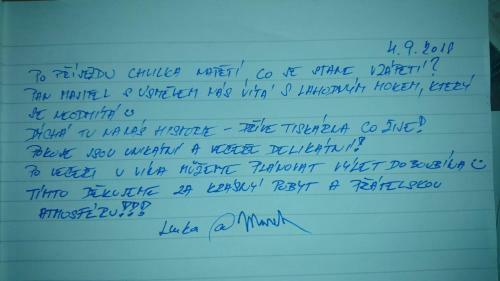 4.9.2018
PO PŘÍJEZDU CHVILKA NAPĚTÍ CO SE STANE VZÁPĚTÍ?
PAN MAJITEL S ÚSMĚVEM NÁS VÍTÁ S LAHODNÝM MOKEM, KTERÝ
SE NEODMÍTÁ
DÝCHÁ TU NA NÁS HISTORIE - DŘÍVE TISKÁRNA CO ŽIJE!
POKOJE JSOU UNIKÁTNÍ A VEČEŘE DELIKÁTNÍ!
PO VEČEŘI U VÍNA MŮŽEME PLÁNOVAT VÝLET DO BOUBÍNA
TÍMTO DĚKUJEME ZA KRÁSNÝ POBYT A PŘÁTELSKOU
ATMOSFÉRU!!!
Lenka @ Marek